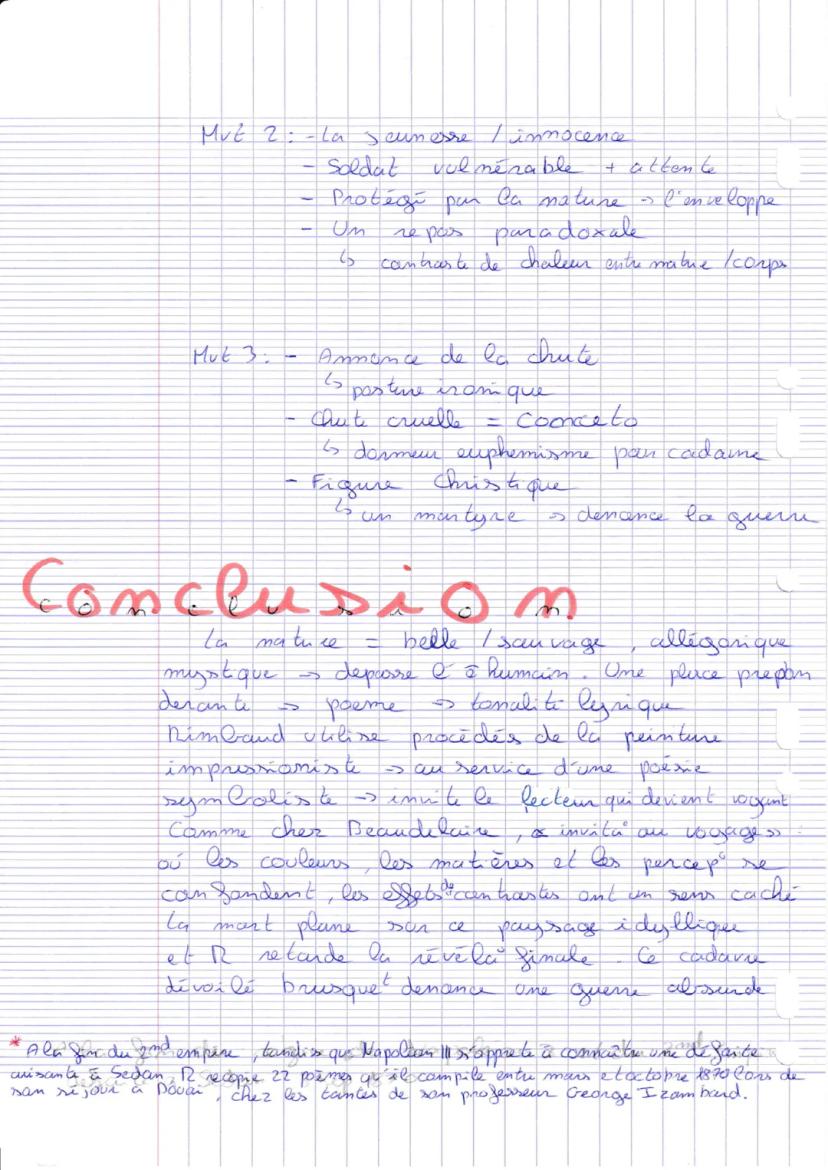 Mvt 2 : - La jeunesse / innocence
- Soldat vulnérable + attente
- Protégé par la nature → l'enveloppe
- Un repos paradoxale
↳ contraste de chaleur entre nature / corps
Mvt 3 : - Annonce de la chute
↳ posture ironique
- Chute cruelle = Concceto
↳ dormeur euphemisme pour cadavre
- Figure Christique
↳ un martyre → denonce la guerre
Conclusion
La nature = belle / sauvage, allégorique
mystique → depasse l'ê humain. Une place prépon
derante → poeme → tonalité lyrique
Rimbaud utilise procédés de la peinture
impressioniste → au service d'une poésie
symboliste → invite le lecteur qui devient voyant
Comme chez Beaudelaire, « invitā° au voyage »
où les couleurs, les matières et les percep° se
confondent, les effets de contrastes ont un sens caché
La mort plane sur ce paysage idyllique
et R retarde la révéla° finale. Ce cadavre
dévoilé brusquet denonce une guerre absurde
* A la fin du 2nd empire, tandis que Napoléon III s'apprete à connaître une défaite
arisante à Sedan, R recopie 22 poèmes qu'il compile entre mars et octobre 1870 lors de
son séjour à Douai, chez les tantes de son professeur George Izambard.